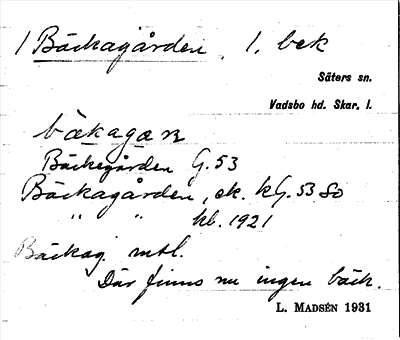 1 Bäckagården, 1. bek
Säters sn.
Vadsbo hd. Skar. l.
bækagaɴ
Bäckegården G. 53
Bäckagården, ek. kG. 53 So
" " kb. 1921
Bäckag. mtl.
Där finns nu ingen bäck.
L. MADSÉN 1931